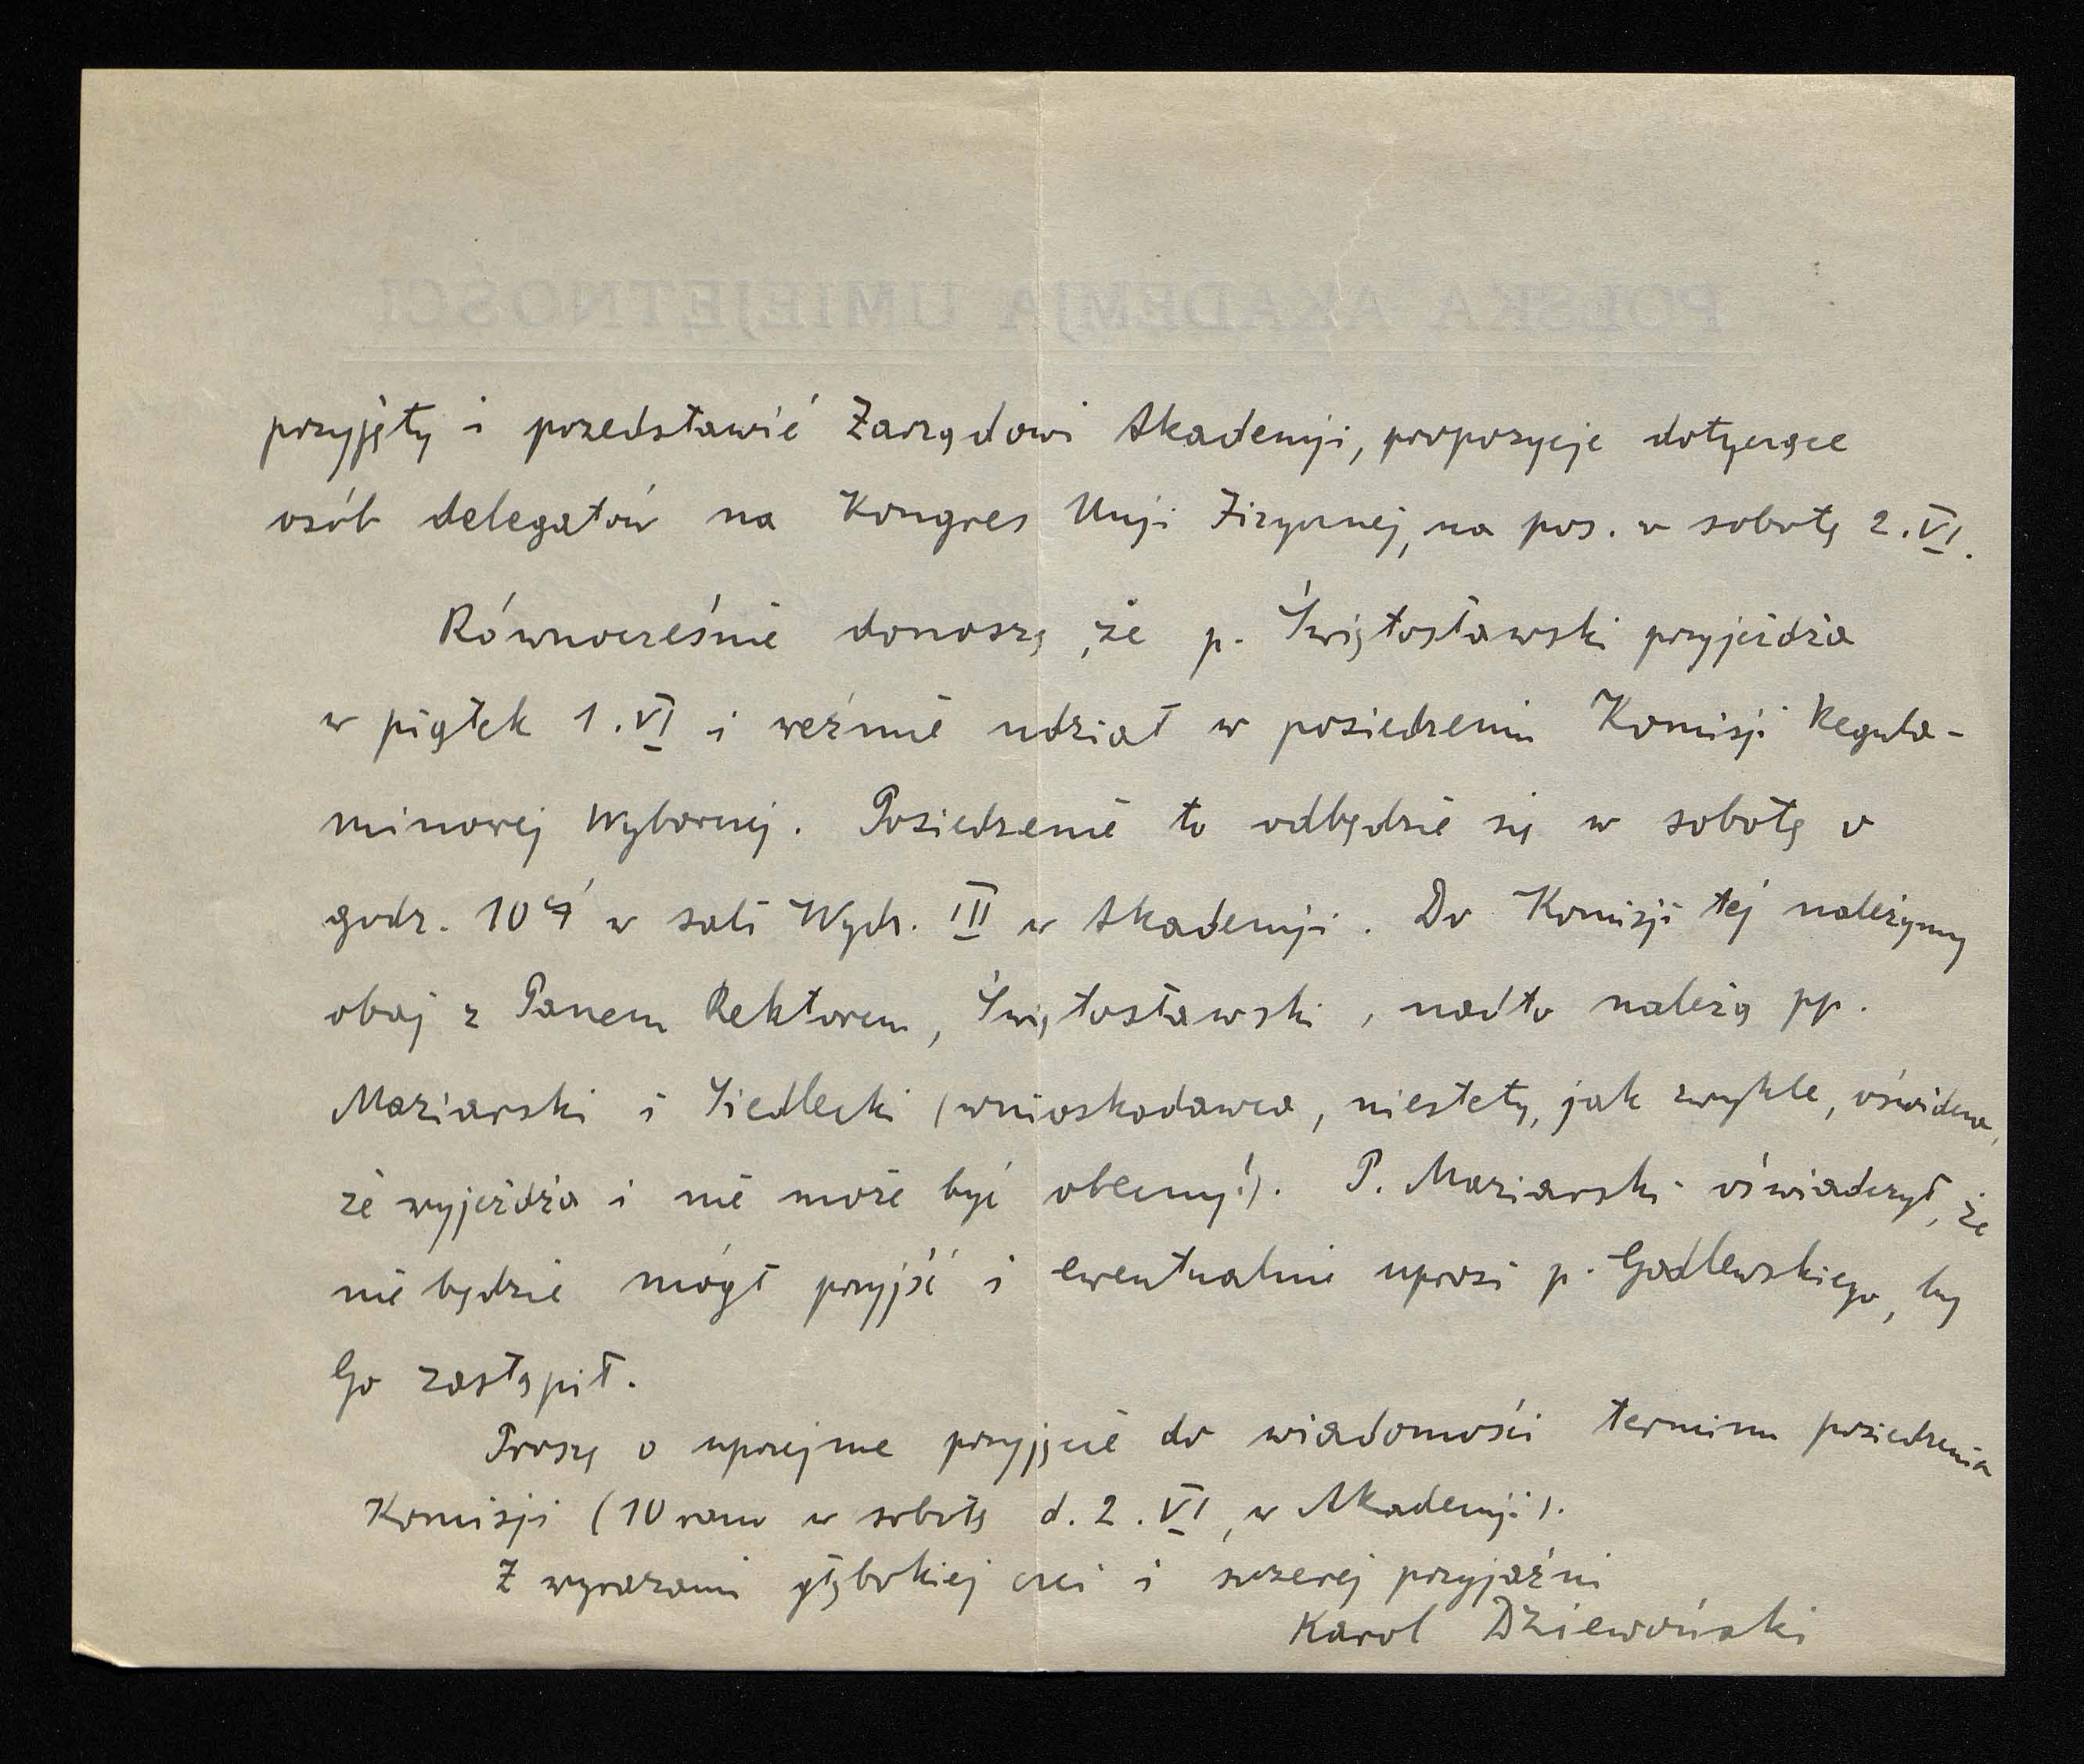 POLSKA AKADEMJA UMIEJĘTNOŚCI
przyjęty i przedstawić Zarządowi Akademji, propozycje dotyczące
osób delegatów na Kongres Unji Fizycznej, na pos. w sobotę 2.VI.
Równocześnie donoszę, że p. Świętosławski przyjeżdża
w piątek 1.VI i weźmie udział w posiedzeniu Komisji Regula-
minowej Wyborczej. Posiedzenie to odbędzie się w sobotę o
godz. 10 ej w sali Wydz. III w Akademji. Do Komisji tej należymy
obaj z Panem Rektorem, Świętosławski, nadto należą pp.
Maziarski i Siedlecki (wnioskodawca, niestety, jak zwykle, oświadcza,
że wyjeżdża i nie może być obecny!). P. Maziarski oświadczył, że
nie będzie mógł przyjść i ewentualnie uprosi p. Godlewskiego, by
Go zastąpił.
Proszę o uprzejme przyjęcie do wiadomości terminu posiedzenia
Komisji (10 rano w sobotę d. 2.VI, w Akademji).
Z wyrazami głębokiej czci i szczerej przyjaźni
Karol Dziewoński